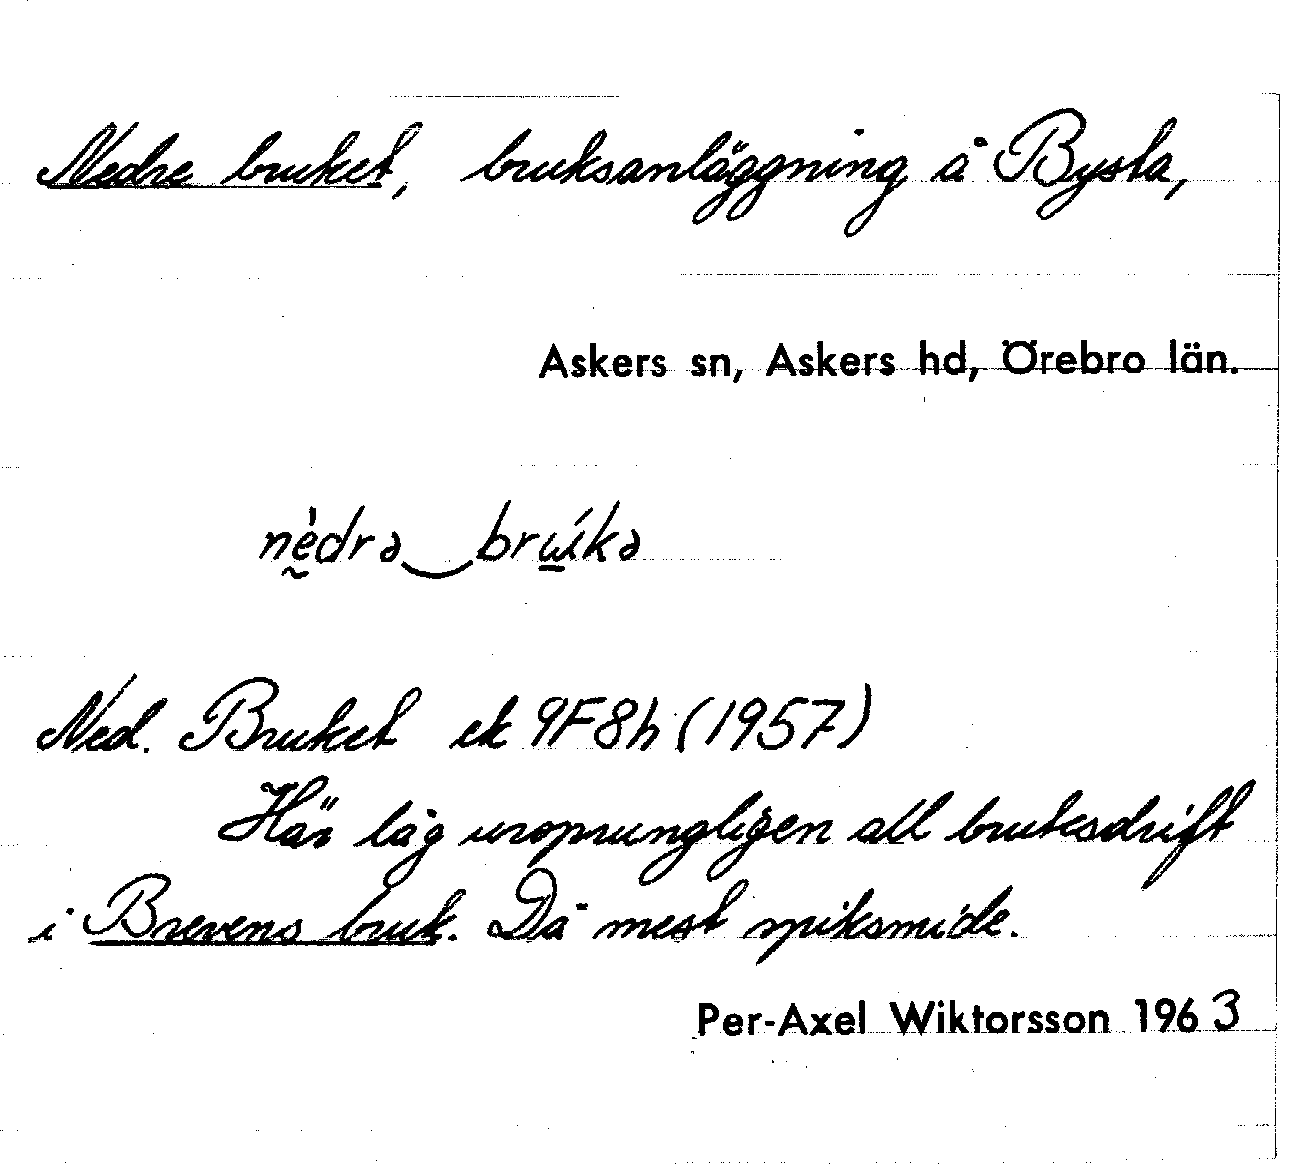 Nedre bruket, bruksanläggning å Bysta,
Askers sn, Askers hd, Örebro län.
nḛ̀drə‿brɯ̲́kə
Ned. Bruket ek 9F8h (1957)
Här låg ursprungligen all bruksdrift
i Brevens bruk. Då mest spiksmide.
Per-Axel Wiktorsson 1963